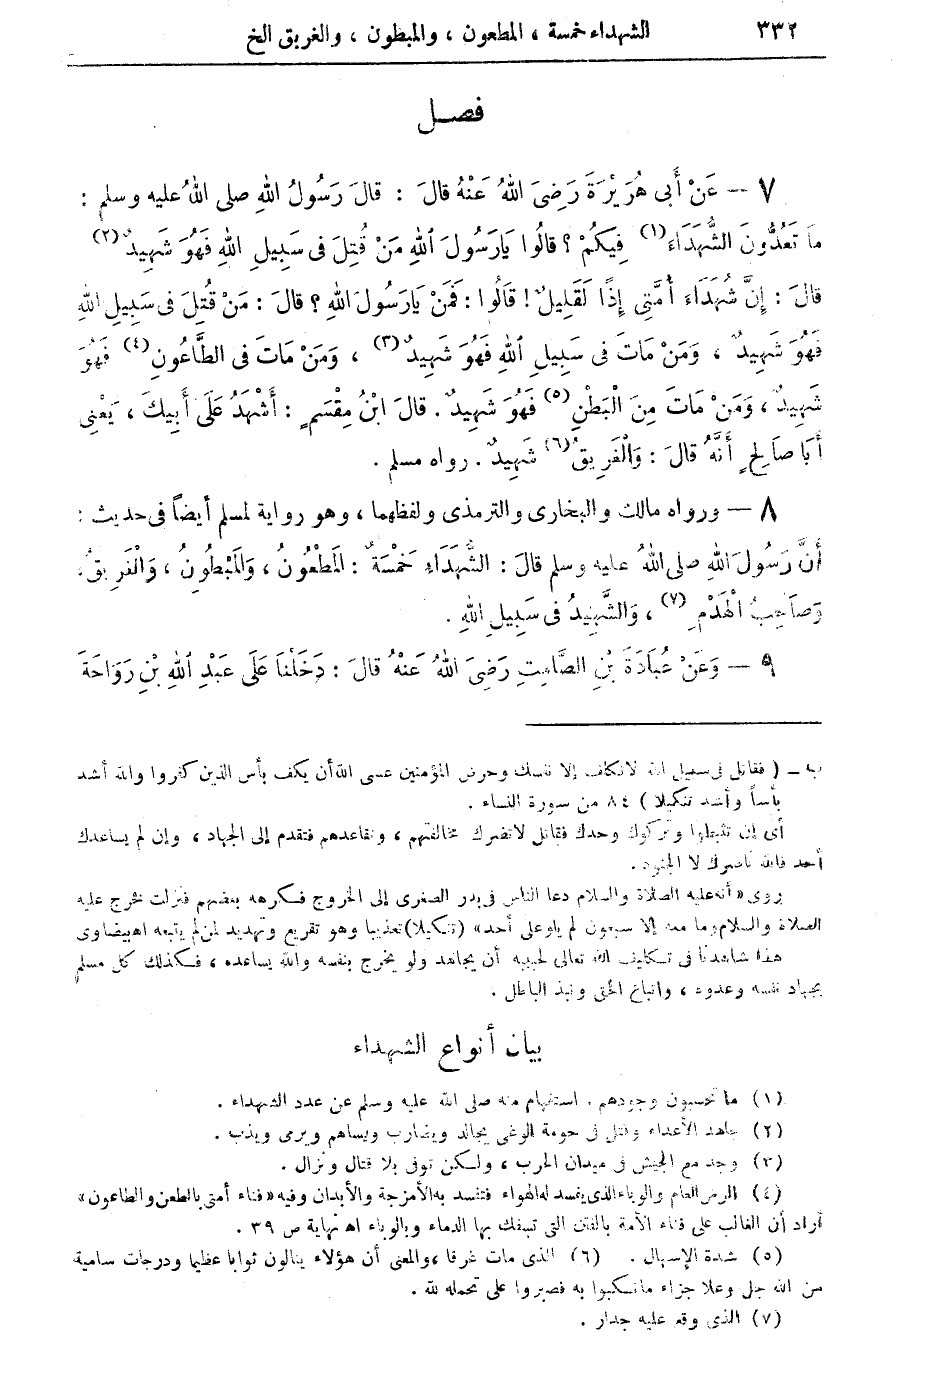 ٣٣٢ الشهداء خمسة ، المطعون ، والمبطون ، والغريق الخ
فصل
٧ — عَنْ أَبِى هُرَيْرَةَ رَضِىَ اللهُ عَنْهُ قالَ : قالَ رَسُولُ اللهِ صلى اللهُ عليه وسلم :
ما تَعُدُّونَ الشُّهَدَاءَ(١) فِيكُمْ ؟ قالُوا يَارَسُولَ اللهِ مَنْ قُتِلَ فى سَبِيلِ اللهِ فَهُوَ شَهِيدٌ(٢)
قالَ : إِنَّ شُهَدَاءَ أُمَّتِى إِذًا لَقَلِيلٌ ! قَالُوا : فَمَنْ يَارَسُولَ اللهِ ؟ قالَ : مَنْ قُتِلَ فى سَبِيلِ اللهِ
فَهُوَ شَهِيدٌ ، وَمَنْ مَاتَ فى سَبِيلِ اللهِ فَهُوَ شَهِيدٌ(٣) ، وَمَنْ مَاتَ فى الطَّاعُونِ(٤) فَهُوَ
شَهِيدٌ ، وَمَنْ مَاتَ مِنَ الْبَطْنِ(٥) فَهُوَ شَهِيدٌ . قالَ ابْنُ مِقْسَمٍ : أَشْهَدُ عَلَى أَبِيكَ ، يَعْنِى
أَبَا صَالِحٍ أَنَّهُ قالَ : وَالْغَرِيقُ(٦) شَهِيدٌ . رواه مسلم .
٨ — ورواه مالك والبخارى والترمذى ولفظهما ، وهو رواية لمسلم أيضاً فى حديث :
أَنَّ رَسُولَ اللهِ صلى اللهُ عليه وسلم قالَ : الشُّهَدَاءُ خَمْسَةٌ : المَطْعُونُ ، وَالمَبْطُونُ ، وَالْغَرِيقُ ،
وَصَاحِبُ الْهَدْمِ(٧) ، وَالشَّهِيدُ فى سَبِيلِ اللهِ .
٩ — وَعَنْ عُبَادَةَ بْنِ الصَّامِتِ رَضِىَ اللهُ عَنْهُ قالَ : دَخَلْنَا عَلَى عَبْدِ اللهِ بْنِ رَوَاحَةَ
ب — ( فقاتل فى سبيل الله لا تكلف إلا نفسك وحرض المؤمنين عسى الله أن يكف بأس الذين كفروا والله أشد
بأساً وأشد تنكيلا ) ٨٤ من سورة النساء .
أى إن تثبطوا وتركوك وحدك فقاتل لا تضرك مخالفتهم ، وتقاعدهم فتقدم إلى الجهاد ، وإن لم يساعدك
أحد فالله ناصرك لا الجنود .
روى « أنه عليه الصلاة والسلام دعا الناس فى بدر الصغرى إلى الخروج فكرهه بعضهم فنزلت فخرج عليه
الصلاة والسلام وما معه إلا سبعون لم يلو على أحد » (تنكيلا) تعذيبا وهو تقريع وتهديد لمن لم يتبعه اه بيضاوى
هذا شاهدنا فى تكليف الله تعالى لحبيبه أن يجاهد ولو يخرج بنفسه والله يساعده ، فكذلك كل مسلم
يجهاد نفسه وعدوه ، واتباع الحق ونبذ الباطل .
بيان أنواع الشهداء
(١) ما تحسبون وجودهم . استفهام منه صلى الله عليه وسلم عن عدد الشهداء .
(٢) جاهد الأعداء وقتل فى حومة الوغى يجالد ويضارب ويساهم ويرمى ويذب .
(٣) وجد مع الجيش فى ميدان الحرب ، ولكن توفى بلا قتال ونزال .
(٤) المرض العام والوباء الذى يفسد له الهواء فتفسد به الأمزجة والأبدان وفيه « فناء أمتى بالطعن والطاعون »
أراد أن الغالب على فناء الأمة بالفتن التى تسفك بها الدماء وبالوباء اه نهاية ص ٣٩ .
(٥) شدة الإسهال . (٦) الذى مات غرقا ، والمعنى أن هؤلاء ينالون ثوابا عظيما ودرجات سامية
من الله جل وعلا جزاء ما نكبوا به فصبروا على تحمله لله .
(٧) الذى وقع عليه جدار .